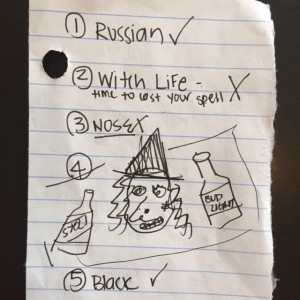 ① Russian ✓
② Witch Life -
time to cast your spell X
③ NOSE X
④
BUD
LIGHT
⑤ Black ✓